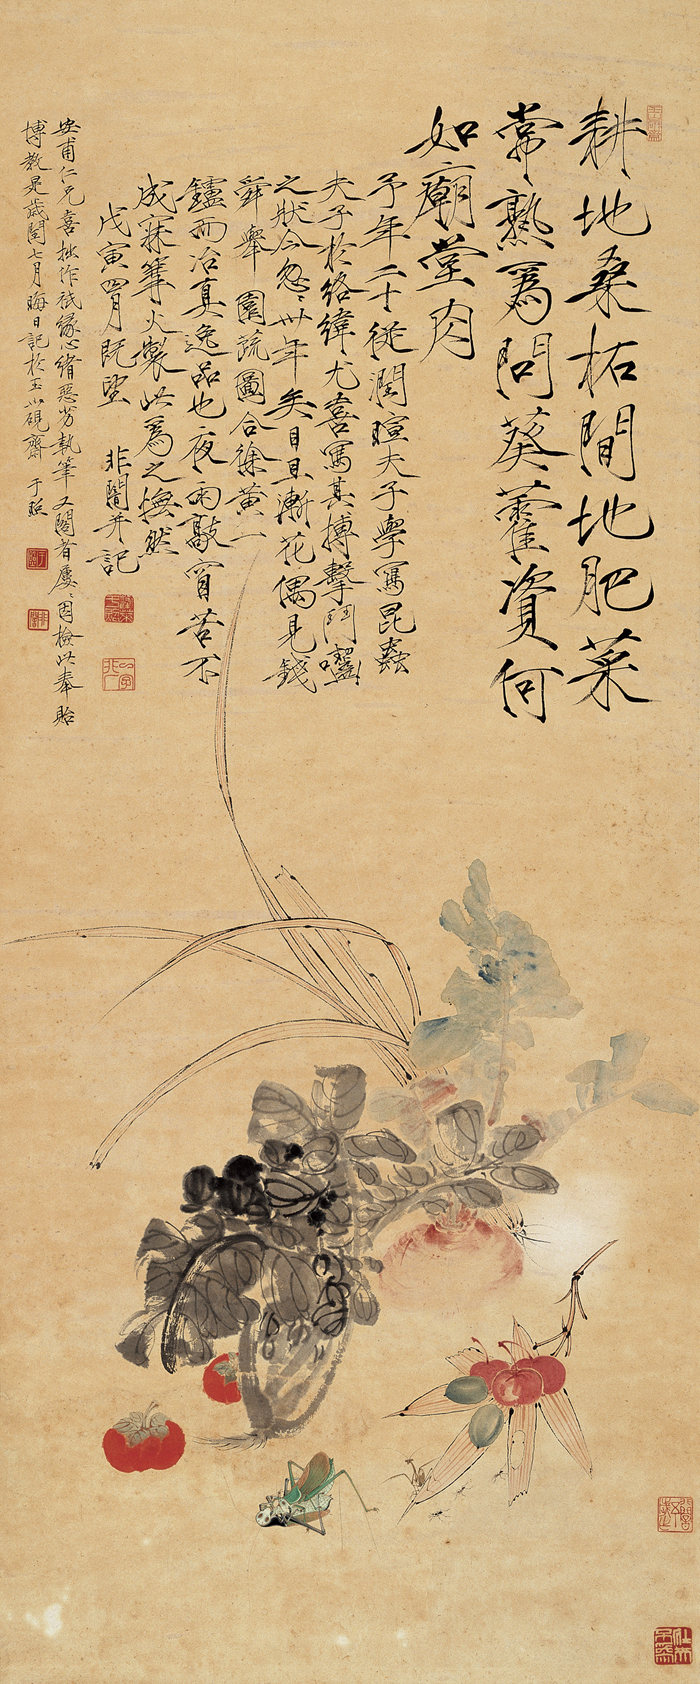 耕地桑柘間地肥菜
常熟為問葵藿資何
如廟堂肉
予年二十從潤暄夫子學寫昆蟲
夫子於絡緯尤喜寫其搏擊鬥囓
之狀今忽〻卅年矣目且漸花偶見錢
舜舉園蔬圖合徐黃一
鑪而冶真逸品也夜雨敲窗苦不
成寐篝火製此為之撫然
戊寅四月既望 非闇并記
安甫仁兄喜拙作祇緣心緒惡劣執筆又閣者屢〻因檢此奉貽
博教是歲閏七月晦日記於玉山硯齋 于照